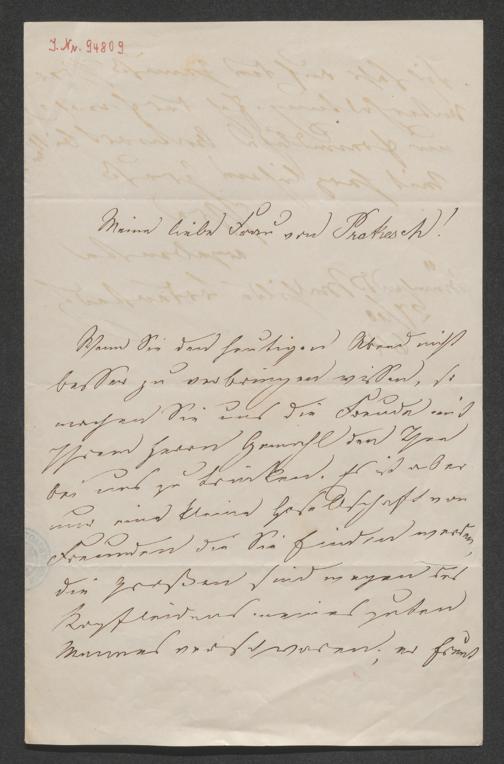 I. Nr. 94809
Meine liebe Frau von Prokesch!
Wenn Sie den heutigen Abend nicht
besser zu verbringen wissen, so
machen Sie uns die Freude mit
Ihrem Herrn Gemahl den Thee
bei uns zu trinken. Es ist aber
nur eine kleine Gesellschaft von
Freunden die Sie finden werden,
die großen sind wegen des
Kopfleidens meines guten
Mannes verschworen; er freut